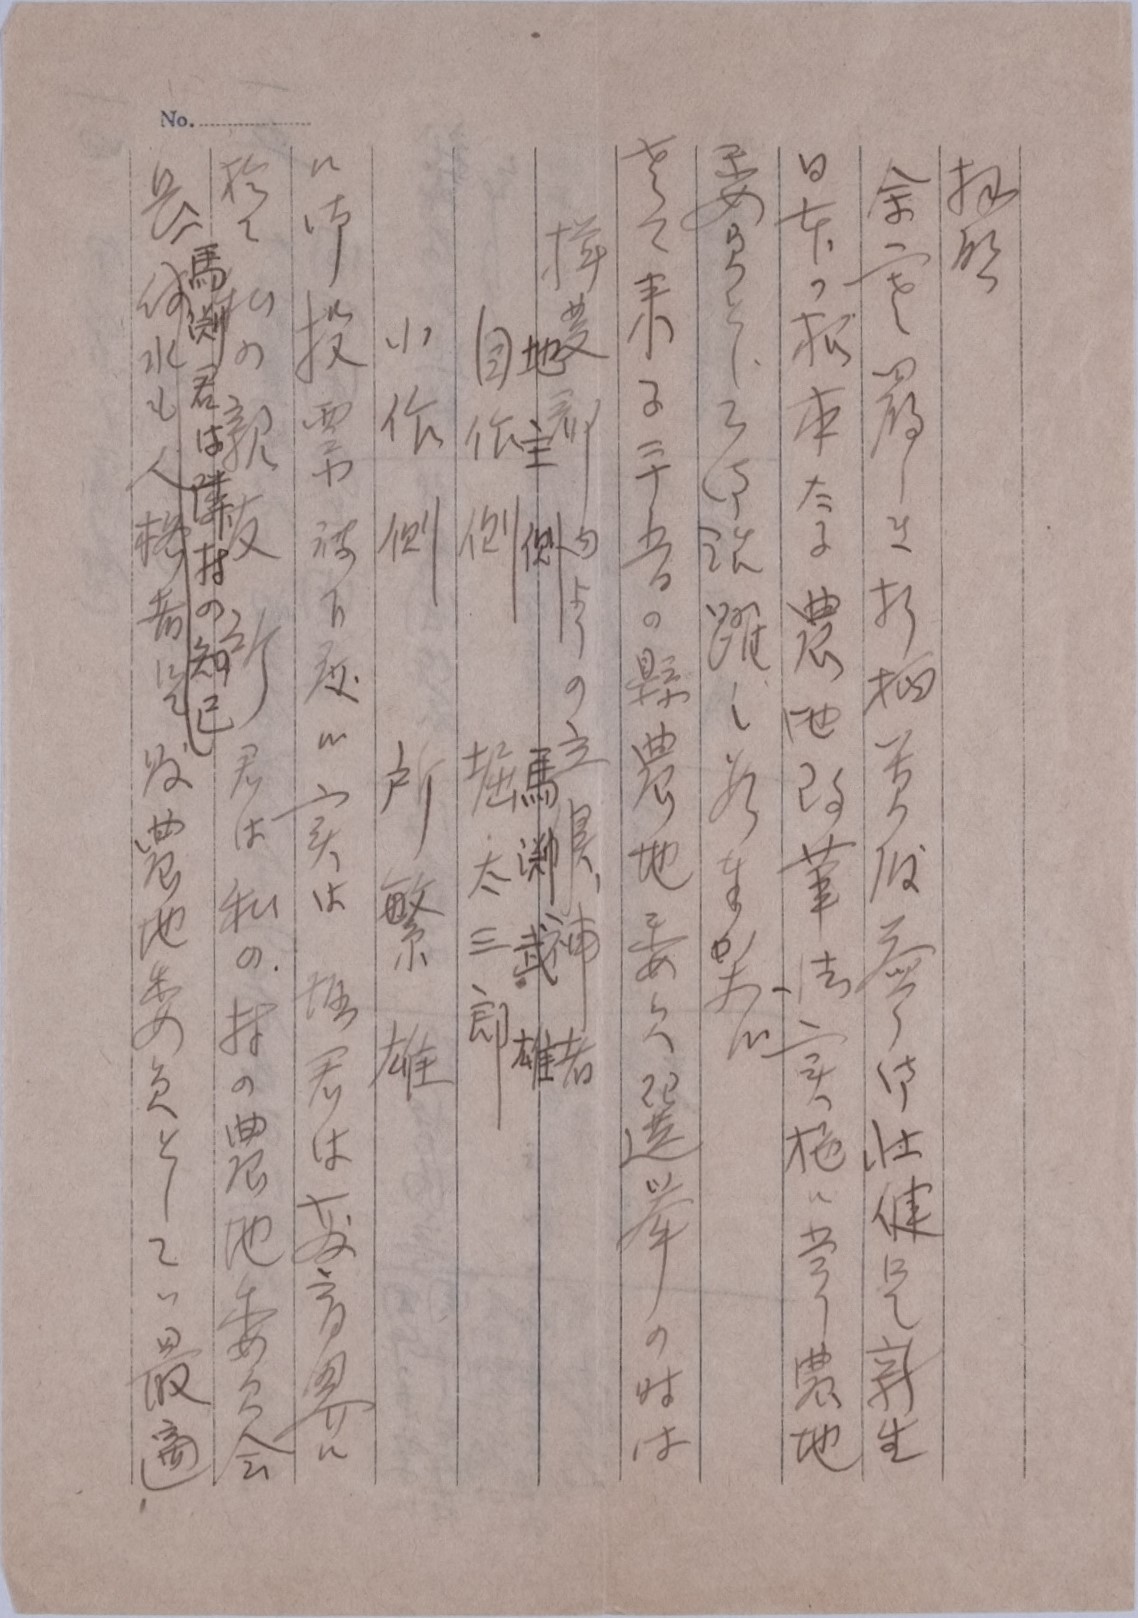 No.
拝啓
余寒厳しき折柄貴殿益々御壮健にて新生
日本の根本たる農地改革法実施に当り農地
委員として御活躍し居る事と
さて来る二十五日の県農地委員選挙の時は
揖斐郡内よりの立候補者
地主側 馬渕武雄
自作側 堀太三郎
小作側 所繁雄
に御投票被下度 実は 堀君は教育界に
於て私の親友 所君は私の村の農地委員会
長 馬渕君は隣村の知己
何れも人格者にて 農地委員として最適